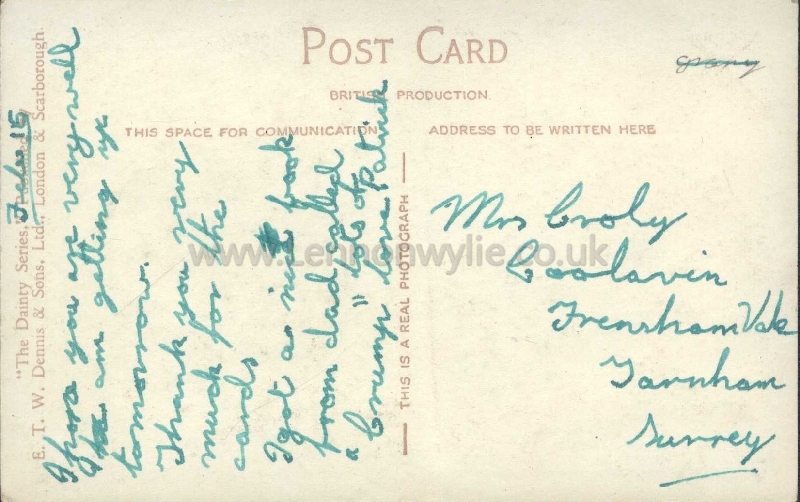 POST CARD
BRITISH PRODUCTION
THIS SPACE FOR COMMUNICATION
ADDRESS TO BE WRITTEN HERE
"The Dainty Series,"
E. T. W. Dennis & Sons, Ltd., London & Scarborough.
THIS IS A REAL PHOTOGRAPH
www.Lennonwylie.co.uk
Feb 15
I hope you are very well
I am getting up
tomorrow.
Thank you very
much for the
cards
I got a nice book
from dad called
"Crump" lots of
love Patrick
Mrs Croly
Coolavin
Frensham Vale
Farnham
Surrey